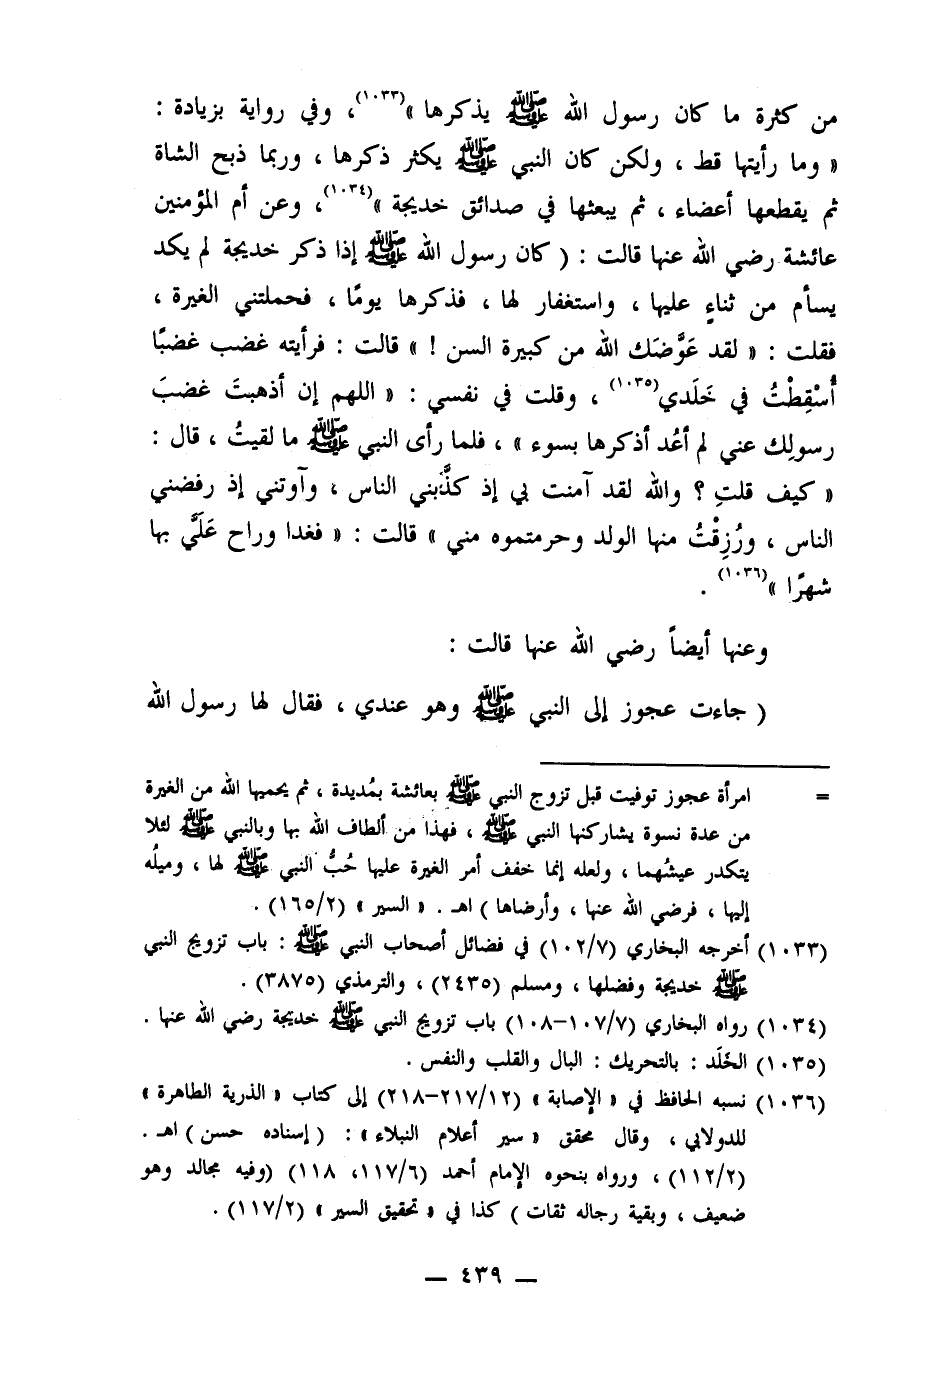 من كثرة ما كان رسول الله ﷺ يذكرها »(١٠٣٣)، وفي رواية بزيادة :
« وما رأيتها قط ، ولكن كان النبي ﷺ يكثر ذكرها ، وربما ذبح الشاة
ثم يقطعها أعضاء ، ثم يبعثها في صدائق خديجة »(١٠٣٤)، وعن أم المؤمنين
عائشة رضي الله عنها قالت : ( كان رسول الله ﷺ إذا ذكر خديجة لم يكد
يسأم من ثناءٍ عليها ، واستغفار لها ، فذكرها يومًا ، فحملتني الغيرة ،
فقلت : « لقد عَوَّضَك الله من كبيرة السن ! » قالت : فرأيته غضب غضبًا
أُسْقِطْتُ في خَلَدي(١٠٣٥) ، وقلت في نفسي : « اللهم إن أذهبتَ غضبَ
رسولِك عني لم أعُد أذكرها بسوء » ، فلما رأى النبي ﷺ ما لقيتُ ، قال :
« كيف قلتِ ؟ والله لقد آمنت بي إذ كذَّبني الناس ، وآوتني إذ رفضني
الناس ، ورُزِقْتُ منها الولد وحرمتموه مني » قالت : « فغدا وراح عَلَيَّ بها
شهرًا »(١٠٣٦) .
وعنها أيضاً رضي الله عنها قالت :
( جاءت عجوز إلى النبي ﷺ وهو عندي ، فقال لها رسول الله
= امرأة عجوز توفيت قبل تزوج النبي ﷺ بعائشة بمُديدة ، ثم يحميها الله من الغيرة
من عدة نسوة يشاركنها النبي ﷺ ، فهذا من ألطاف الله بها وبالنبي ﷺ لئلا
يتكدر عيشُهما ، ولعله إنما خفف أمر الغيرة عليها حُبُّ النبي ﷺ لها ، وميلُه
إليها ، فرضي الله عنها ، وأرضاها ) اهـ . « السير » (١٦٥/٢) .
(١٠٣٣) أخرجه البخاري (١٠٢/٧) في فضائل أصحاب النبي ﷺ : باب تزويج النبي
ﷺ خديجة وفضلها ، ومسلم (٢٤٣٥) ، والترمذي (٣٨٧٥) .
(١٠٣٤) رواه البخاري (١٠٧/٧–١٠٨) باب تزويج النبي ﷺ خديجة رضي الله عنها .
(١٠٣٥) الخَلَد : بالتحريك : البال والقلب والنفس .
(١٠٣٦) نسبه الحافظ في « الإصابة » (٢١٧/١٢–٢١٨) إلى كتاب « الذرية الطاهرة »
للدولابي ، وقال محقق « سير أعلام النبلاء » : ( إسناده حسن ) اهـ .
(١١٢/٢) ، ورواه بنحوه الإمام أحمد (١١٧/٦، ١١٨) (وفيه مجالد وهو
ضعيف ، وبقية رجاله ثقات ) كذا في « تحقيق السير » (١١٧/٢) .
— ٤٣٩ —